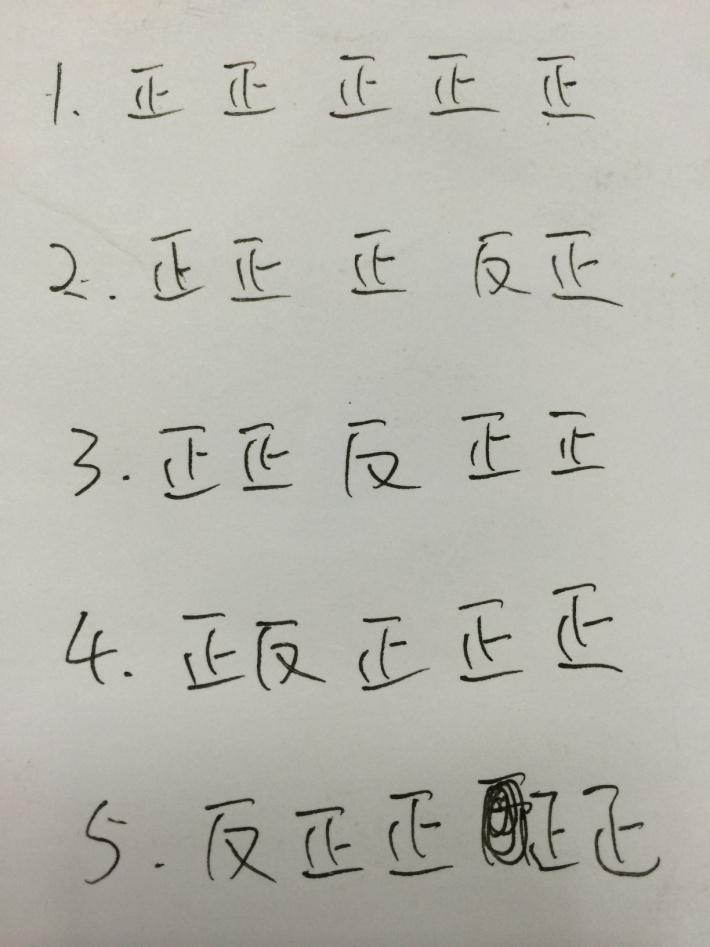 1. 正 正 正 正 正
2. 正 正 正 反 正
3. 正 正 反 正 正
4. 正 反 正 正 正
5. 反 正 正 正 正